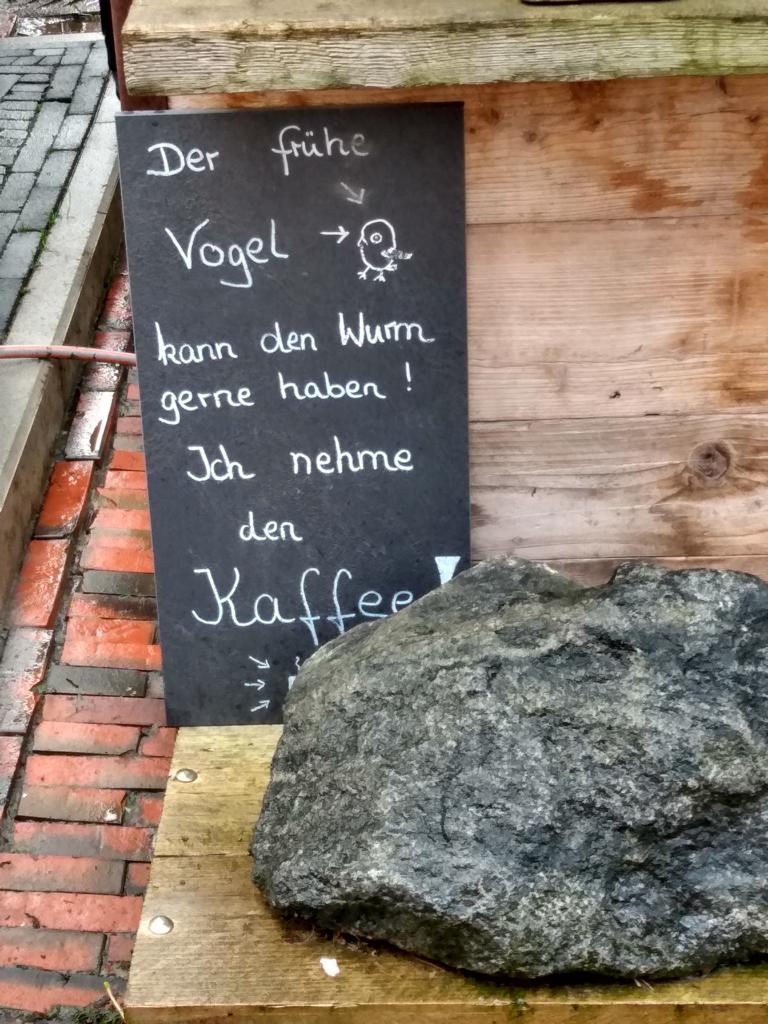 Der frühe
Vogel
kann den Wurm
gerne haben !
Ich nehme
den
Kaffee !